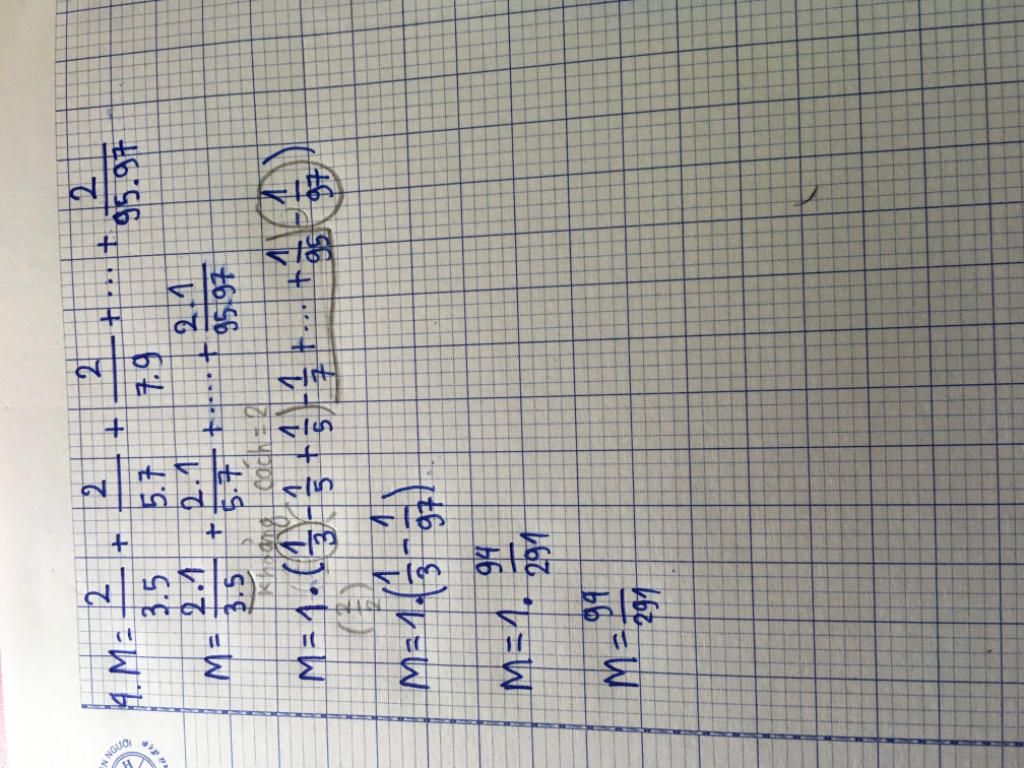 9. M = 2/3.5 + 2/5.7 + 2/7.9 + .... + 2/95.97
M = 2.1/3.5 + 2.1/5.7 + ..... + 2.1/95.97
khoảng cách = 2
M = 1 . (1/3 - 1/5 + 1/5) - 1/7 + ... + 1/95 - 1/97)
(2/2)
M = 1.(1/3 - 1/97)
M = 1. 94/291
M = 94/291
NGƯỜI